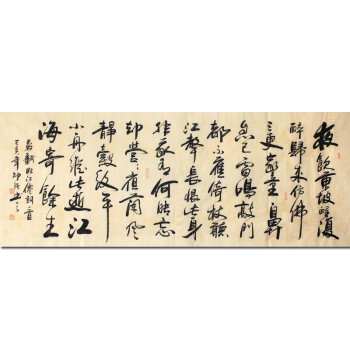 夜飲東坡醒復
醉歸來仿佛
三更家童鼻
息已雷鳴敲門
都不應倚杖聽
江聲長恨此身
非我有何時忘
却營營夜闌風
靜縠紋平
小舟從此逝江
海寄餘生
蘇軾臨江仙詞一首
丁亥年